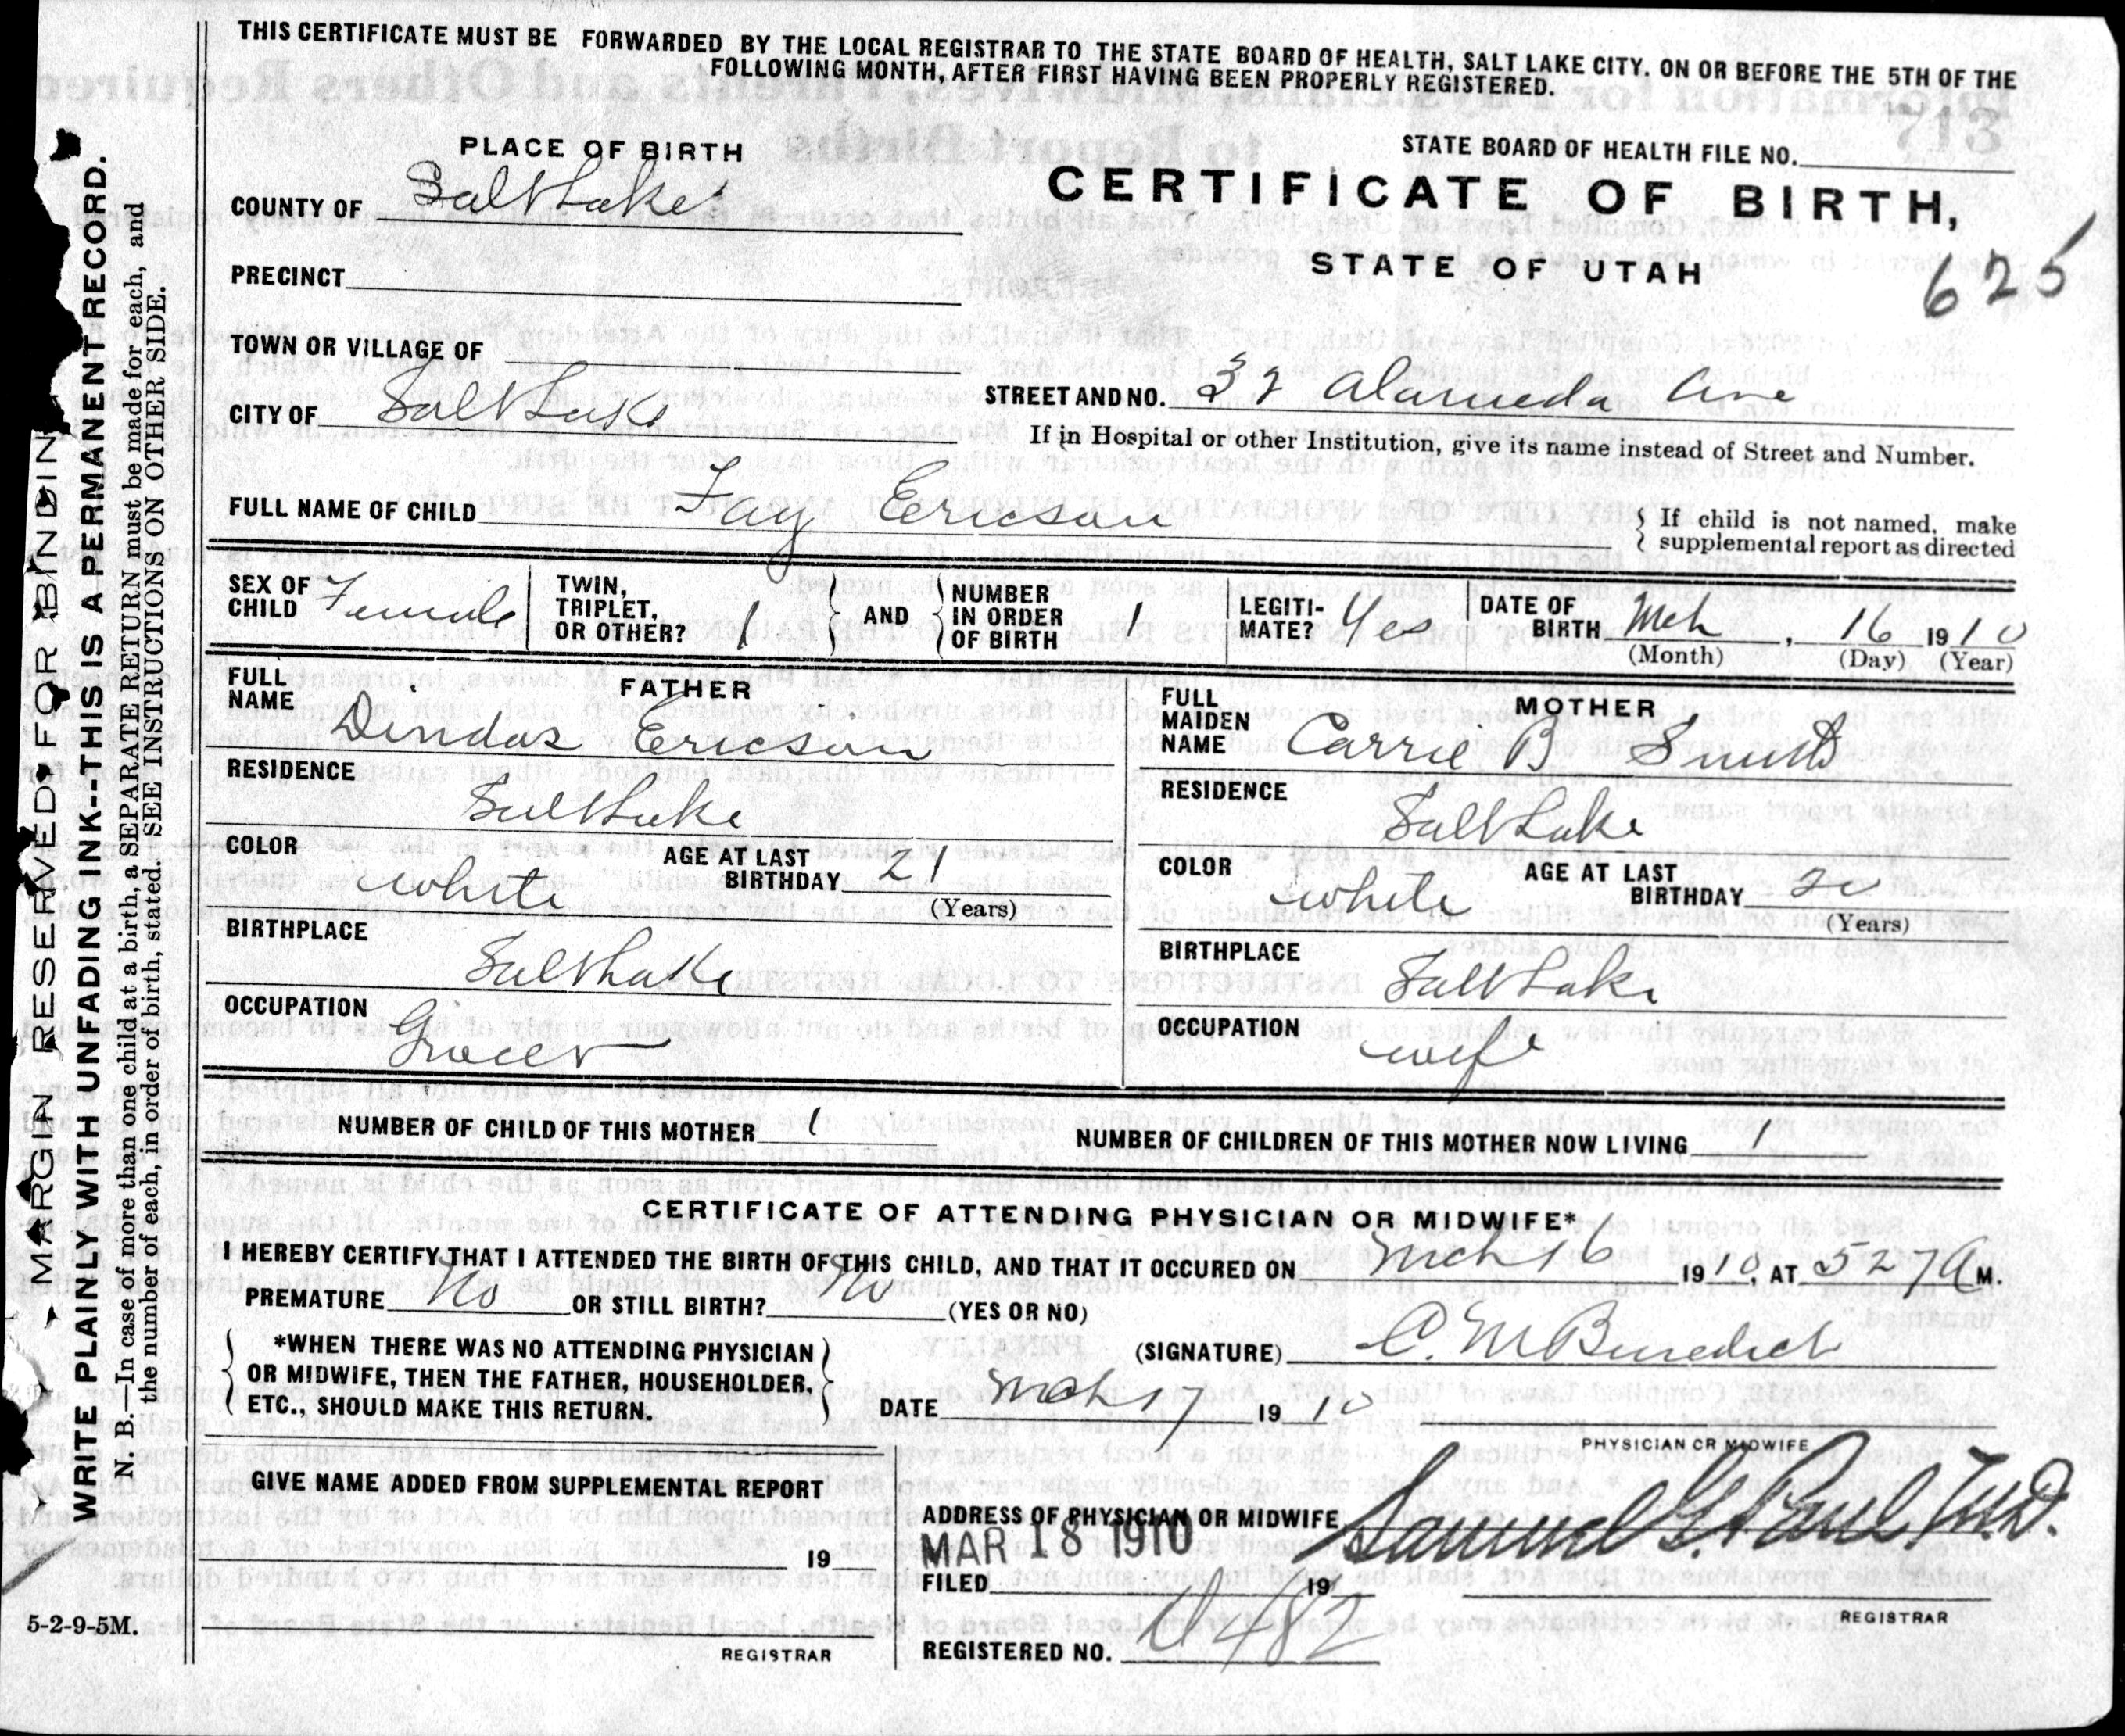 THIS CERTIFICATE MUST BE FORWARDED BY THE LOCAL REGISTRAR TO THE STATE BOARD OF HEALTH, SALT LAKE CITY. ON OR BEFORE THE 5TH OF THE
FOLLOWING MONTH, AFTER FIRST HAVING BEEN PROPERLY REGISTERED.
713
PLACE OF BIRTH
STATE BOARD OF HEALTH FILE NO.
COUNTY OF Salt Lake
CERTIFICATE OF BIRTH,
PRECINCT
STATE OF UTAH
625
TOWN OR VILLAGE OF
CITY OF Salt Lake
STREET AND NO. 32 Alameda Ave
If in Hospital or other Institution, give its name instead of Street and Number.
FULL NAME OF CHILD Fay Ericson
If child is not named, make
supplemental report as directed
SEX OF CHILD Female
TWIN, TRIPLET, OR OTHER? 1
AND
NUMBER IN ORDER OF BIRTH 1
LEGITI-MATE? Yes
DATE OF BIRTH Mch, 16 1910
(Month) (Day) (Year)
FATHER
FULL NAME Ericson
RESIDENCE
Salt Lake
COLOR white
AGE AT LAST BIRTHDAY 21
(Years)
BIRTHPLACE
Salt Lake
OCCUPATION
Grocer
MOTHER
FULL MAIDEN NAME Carrie B Smith
RESIDENCE
Salt Lake
COLOR white
AGE AT LAST BIRTHDAY 20
(Years)
BIRTHPLACE
Salt Lake
OCCUPATION
wife
NUMBER OF CHILD OF THIS MOTHER 1
NUMBER OF CHILDREN OF THIS MOTHER NOW LIVING 1
CERTIFICATE OF ATTENDING PHYSICIAN OR MIDWIFE*
I HEREBY CERTIFY THAT I ATTENDED THE BIRTH OF THIS CHILD, AND THAT IT OCCURED ON Mch 16 1910, AT 527 A M.
PREMATURE No OR STILL BIRTH? No (YES OR NO)
*WHEN THERE WAS NO ATTENDING PHYSICIAN
OR MIDWIFE, THEN THE FATHER, HOUSEHOLDER,
ETC., SHOULD MAKE THIS RETURN.
(SIGNATURE) C. M Benedict
DATE Mch 17 1910
PHYSICIAN OR MIDWIFE
GIVE NAME ADDED FROM SUPPLEMENTAL REPORT
19
REGISTRAR
ADDRESS OF PHYSICIAN OR MIDWIFE
MAR 18 1910
Samuel G. Paul M.D.
FILED 19
REGISTRAR
REGISTERED NO. 482
MARGIN RESERVED FOR BINDIN
WRITE PLAINLY WITH UNFADING INK--THIS IS A PERMANENT RECORD.
N. B.—In case of more than one child at a birth, a SEPARATE RETURN must be made for each, and
the number of each, in order of birth, stated. SEE INSTRUCTIONS ON OTHER SIDE.
5-2-9-5M.